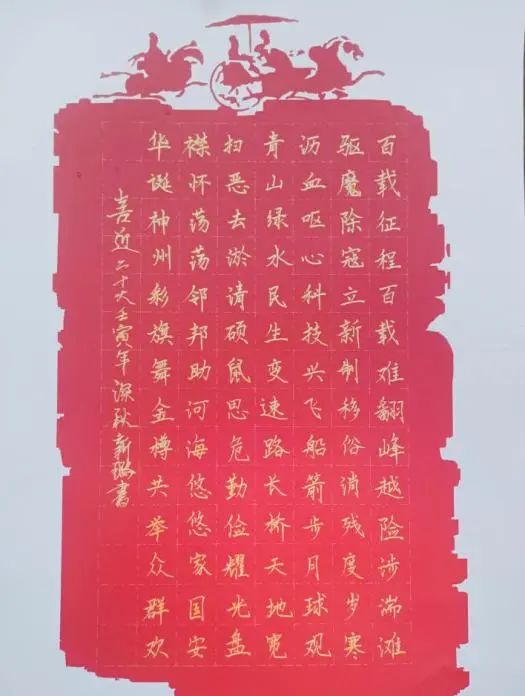 百载征程百载难翻峰越险涉湍滩
驱魔除寇立新制移俗消残度岁寒
沥血呕心科技兴飞船箭步月球观
青山绿水民生变速路长桥天地宽
扫恶去淤清硕鼠思危勤俭耀光盘
襟怀荡荡邻邦助河海悠悠家国安
华诞神州彩旗舞金樽共举众群欢
喜迎二十大壬寅年深秋新书